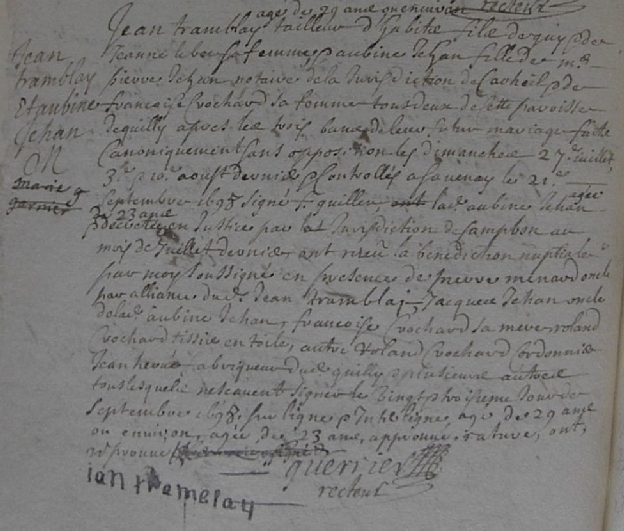 agé de 29 ans ou environ
Jean tramblay tailleur d'habits fils de guy & de
Jean
tramblay
Et aubine
Jehan
M
Jeanne leber sa femme & aubine Jehan fille de me
pierre Jehan notaire de la Jurisdiction de & de
francoise Crochard sa femme tous deux de cette paroisse
de quilly apres les trois bans de leur futur mariage faitte
Canoniquement sans opposition les dimanches 27e Juillet,
3e & 10e aoust derniers & Controllés a Savenay le 21e
marie g
garnier
Septembre 1698 signé quillen, ont lad aubine Jehan agée
de 23 ans
& decretee en Justice par la Jurisdiction de sampbon au
mois de Juillet dernier ont receu la benediction nuptialle
par moy soussigné en presence de pierre menard oncle
par alliance dud Jean tramblay, Jacques Jehan oncle
de lad aubine Jehan, francoise Crochard sa mere, roland
Crochard tissie en toile, autre roland Crochard Cordonnie
Jean hervé abrigneur dud quilly & plusieurs autres
tous lesquels ne scavent signer le vingt & troisieme Jour de
Septembre 1698, sur ligne & Interligne, agé de 29 ans
ou environ, agée de 23 ans, approuvé, rature, ont,
reprouvé
guerrier
recteur
ian tremblay